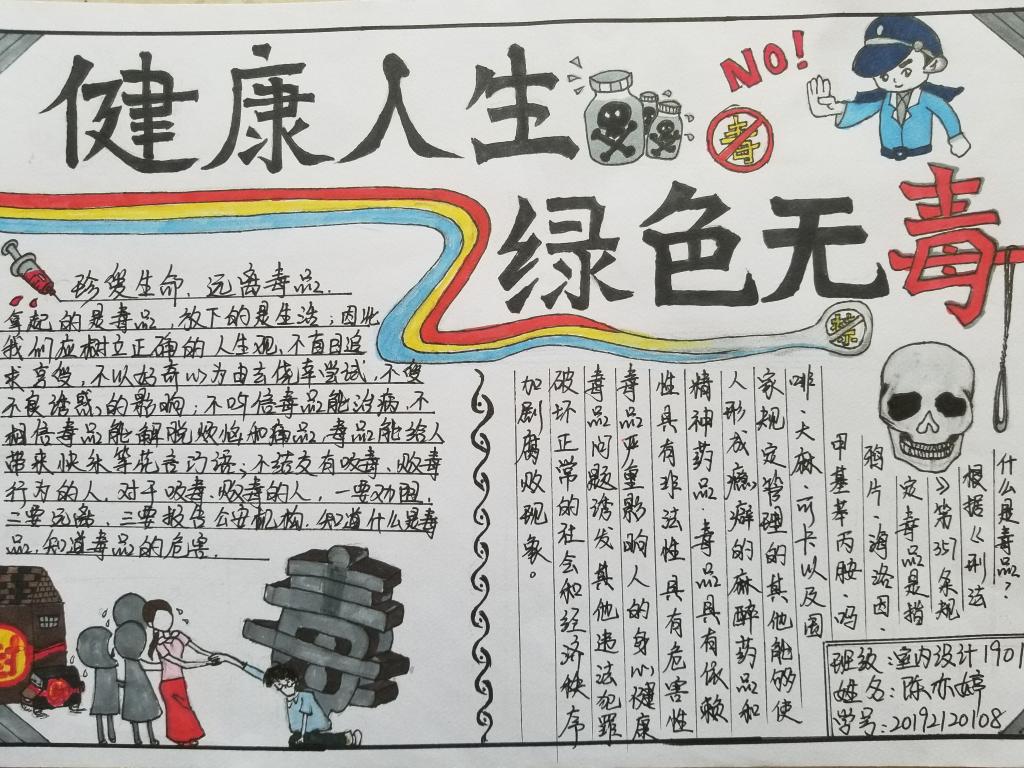 健康人生
NO!
毒
绿色无毒
禁
珍爱生命,远离毒品.
拿起的是毒品,放下的是生活;因此
我们应树立正确的人生观,不盲目追
求享受,不以好奇心为由去侥幸尝试,不受
不良诱惑的影响;不听信毒品能治病,不
相信毒品能解脱烦恼和痛苦,毒品能给人
带来快乐等花言巧语;不结交有吸毒、贩毒
行为的人,对于吸毒、贩毒的人,一要劝阻,
二要远离,三要报告公安机构.知道什么是毒
品,知道毒品的危害.
什么是毒品?
根据《刑法
》第357条规
定毒品是指
鸦片、海洛因、
甲基苯丙胺、吗
啡、大麻、可卡以及国
家规定管理的其他能够使
人形成瘾癖的麻醉药品和
精神药品.毒品具有依赖
性具有非法性具有危害性
毒品严重影响人的身心健康
毒品问题诱发其他违法犯罪
破坏正常的社会和经济秩序
加剧腐败现象。
毒
班级:室内设计1901
姓名:陈亦婷
学号:20192120108